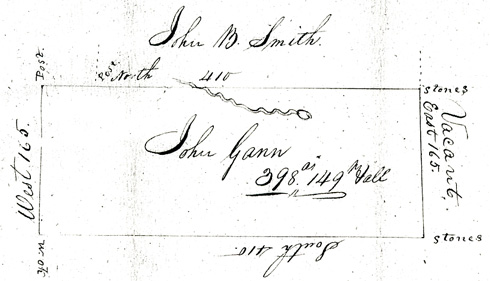 John B. Smith.
Post.
Post
North 410
stones
John Gann
398 as 149 Ps Vall
West 165.
Vacant.
East 165.
W. Ok.
South 410.
stones